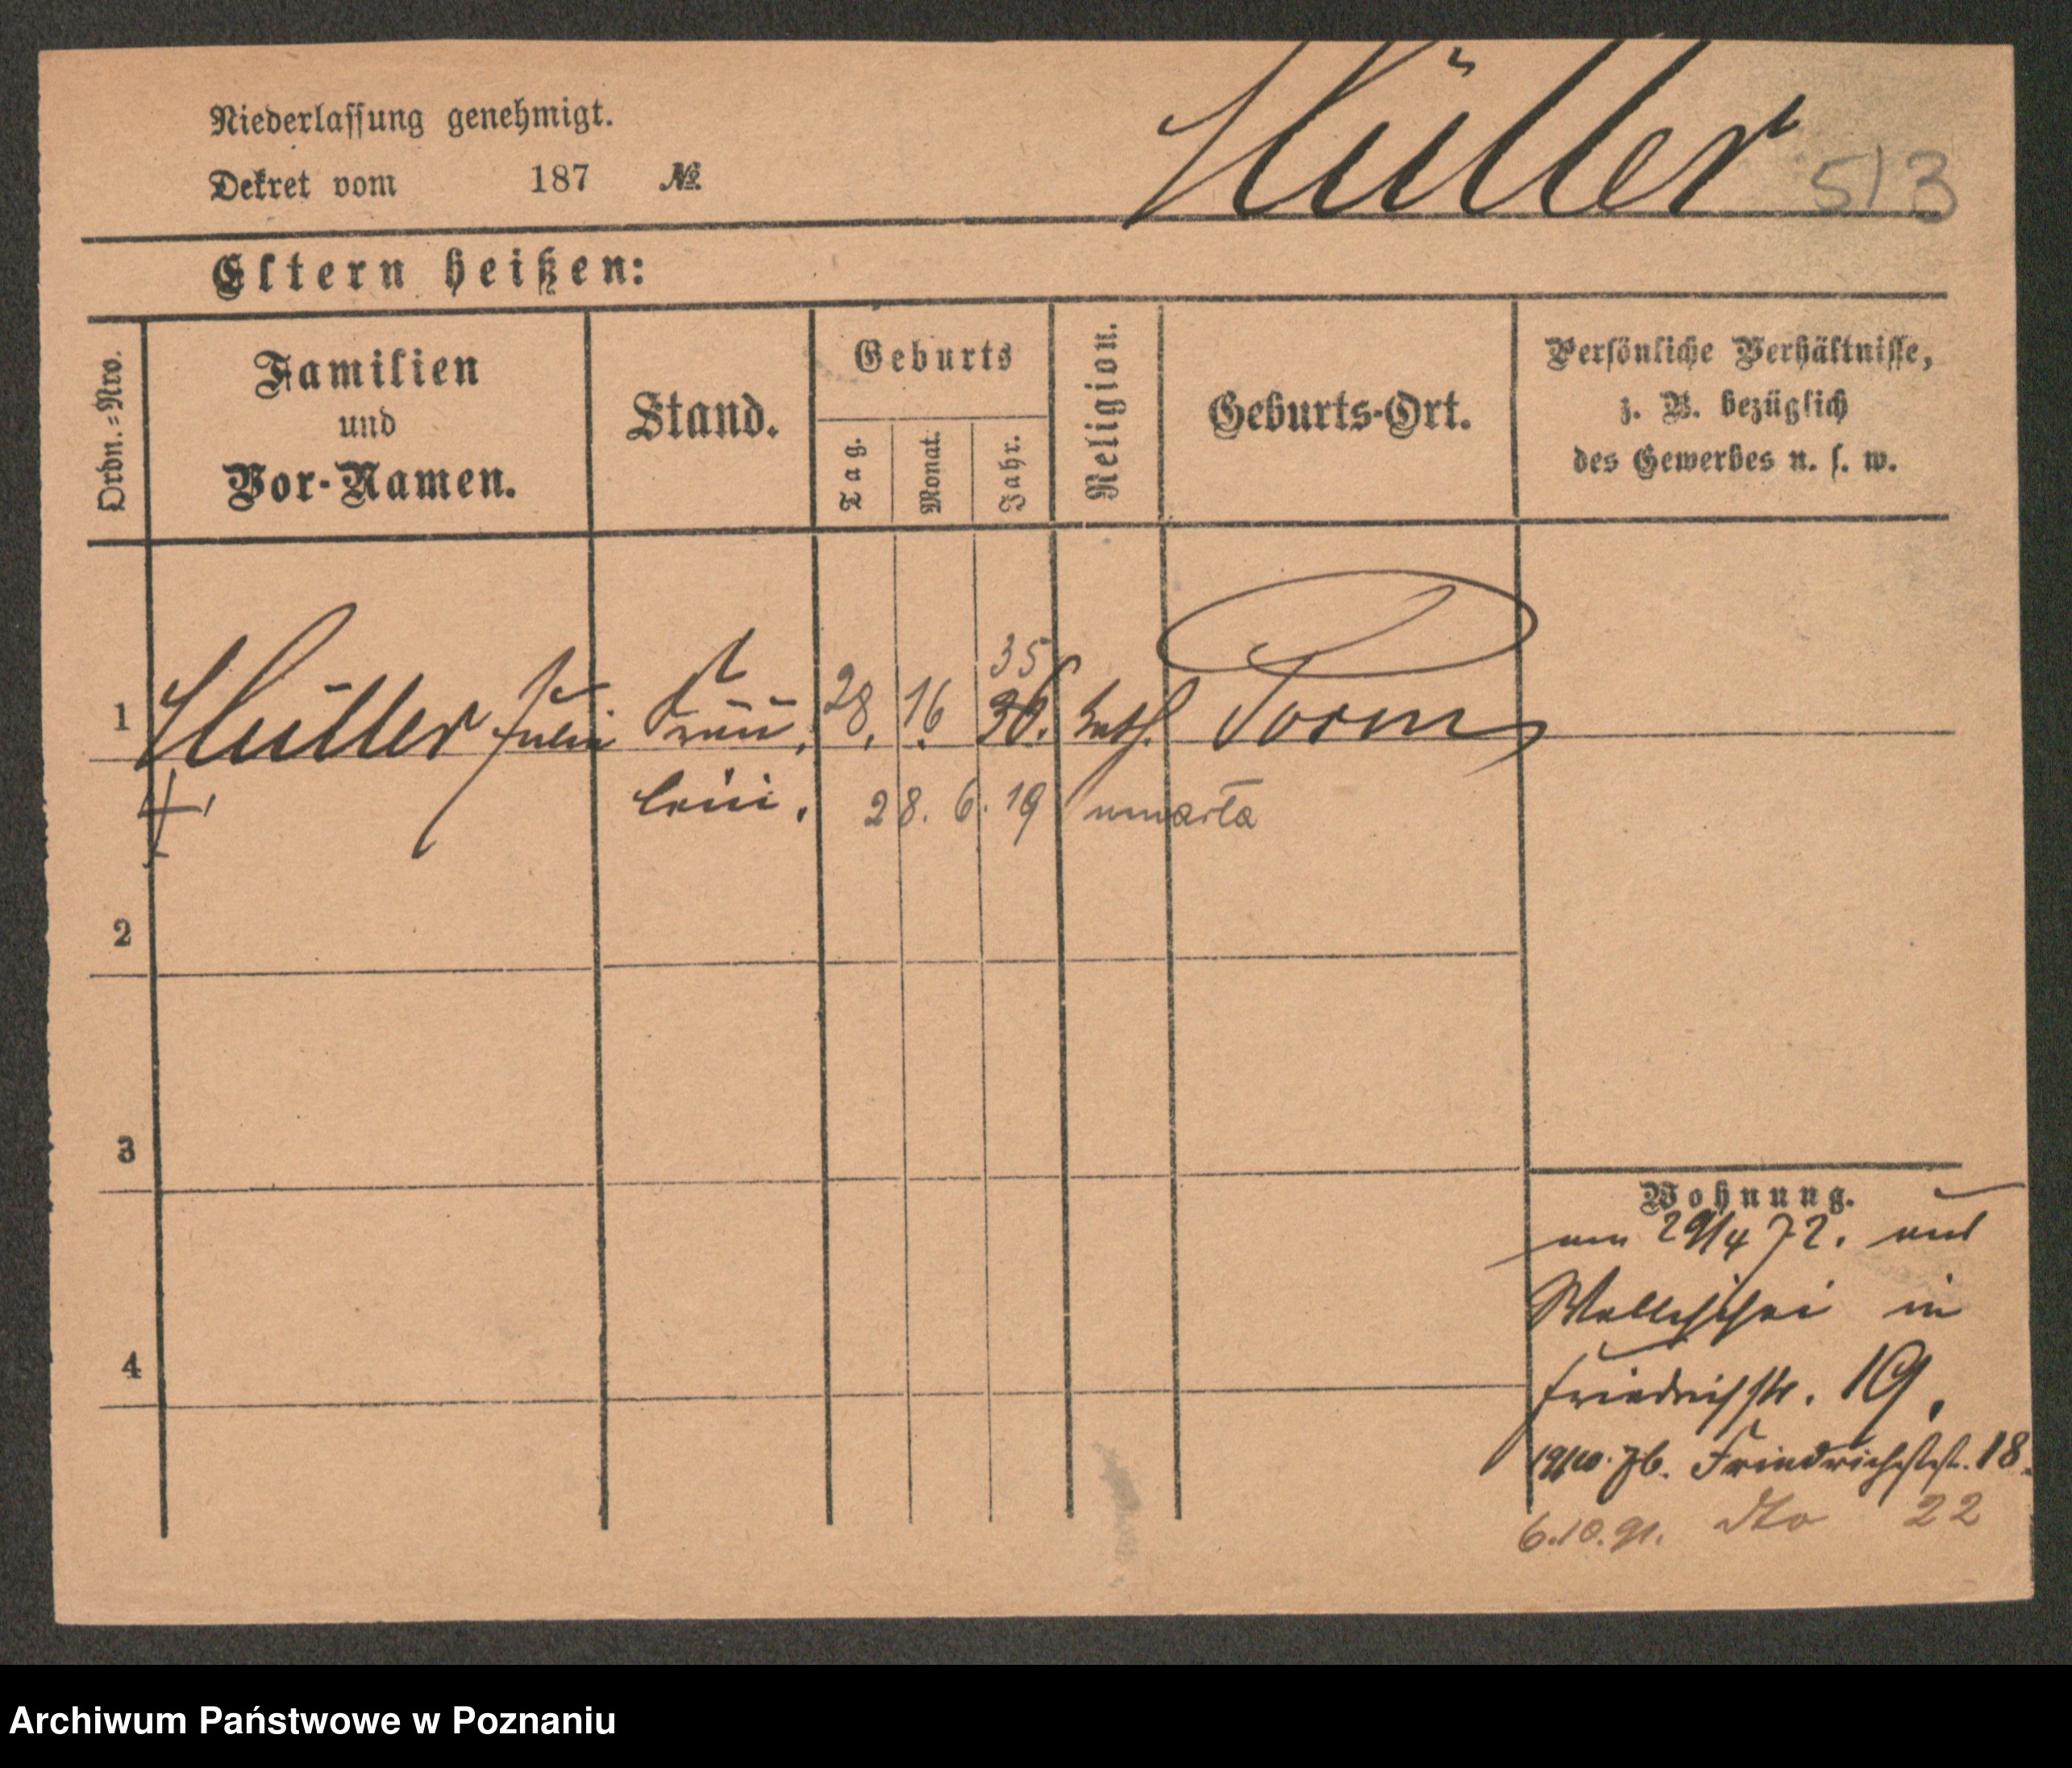 Niederlassung genehmigt.
Dekret vom 187 №
Hüller 513
Eltern heißen:
Ordn.=Nro.
Familien
und
Vor-Namen.
Stand.
Geburts
Tag.
Monat.
Jahr.
Religion.
Geburts-Ort.
Persönliche Verhältnisse,
z. B. bezüglich
des Gewerbes u. s. w.
35
1 Hüller Julia Fräu 28. 16 36. kath. Posen
lein. 28. 6. 19 umarła
2
3
4
Wohnung.
am 29/4 72. aus
Wallischei in
Friedrichstr. 19.
19/10. 76. Friedrichstr. 18.
6.10.91. dto 22
Archiwum Państwowe w Poznaniu